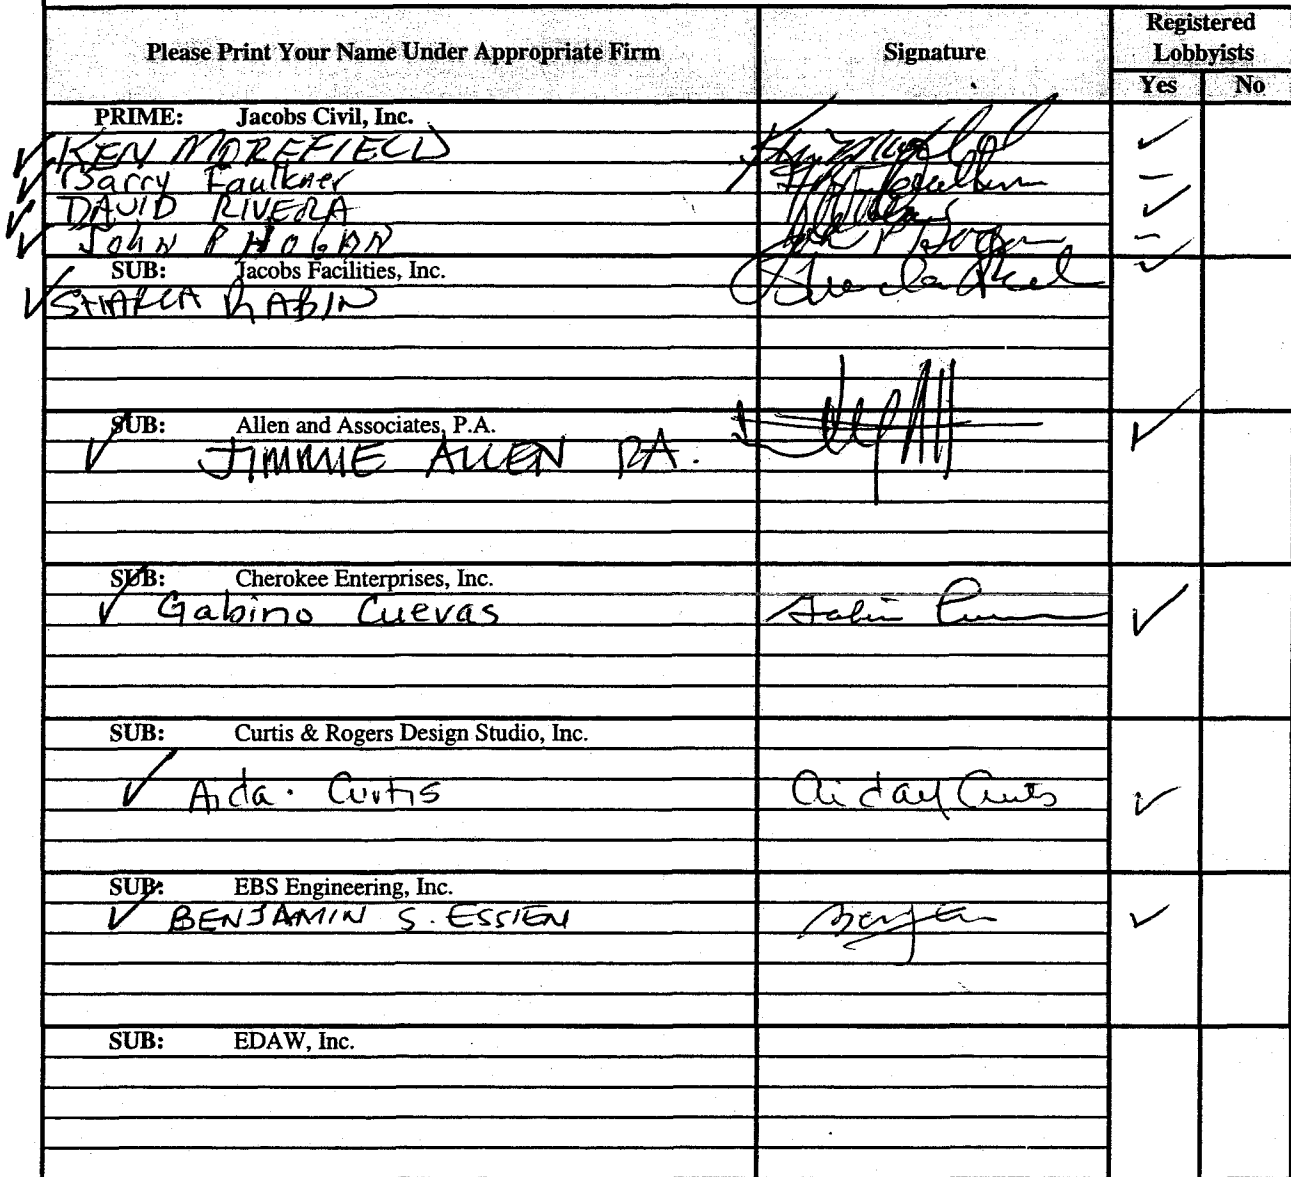 Please Print Your Name Under Appropriate Firm Signature Registered Lobbyists
Yes No
PRIME: Jacobs Civil, Inc.
KEN MOREFIELD
Barry Faulkner
DAVID RIVERA
John P HOGAN
SUB: Jacobs Facilities, Inc.
RABIN
SUB: Allen and Associates, P.A.
JIMMIE ALLEN PA.
SUB: Cherokee Enterprises, Inc.
Gabino Cuevas
SUB: Curtis & Rogers Design Studio, Inc.
Aida. Curtis
SUB: EBS Engineering, Inc.
BENJAMIN S. ESSIEN
SUB: EDAW, Inc.